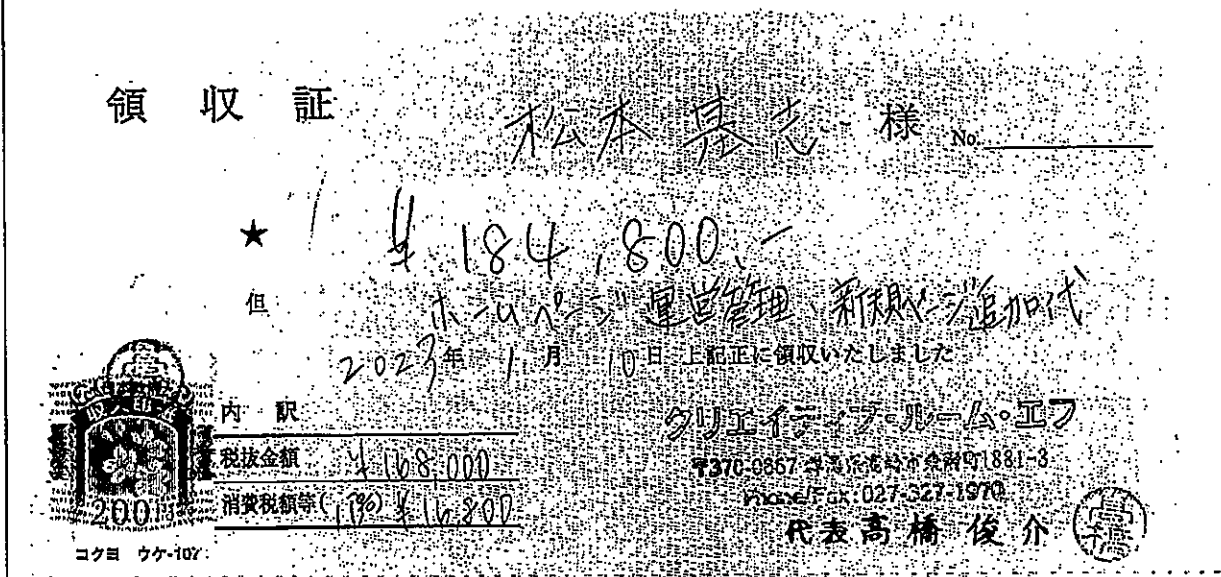 領収証
松本 基志 様 No.
★ ¥184,800.-
但 ホームページ運営管理、新規ページ追加代
2023年 1月 10日 上記正に領収いたしました
内訳
税抜金額 ¥168,000
消費税額等(10%) ¥16,800
クリエイティブ・ルーム・エフ
〒370-0867 群馬県高崎市乗附町1881-3
Phone/Fax:027-327-1970
代表 高橋 俊介
収入印紙
200
コクヨ ウケ-107